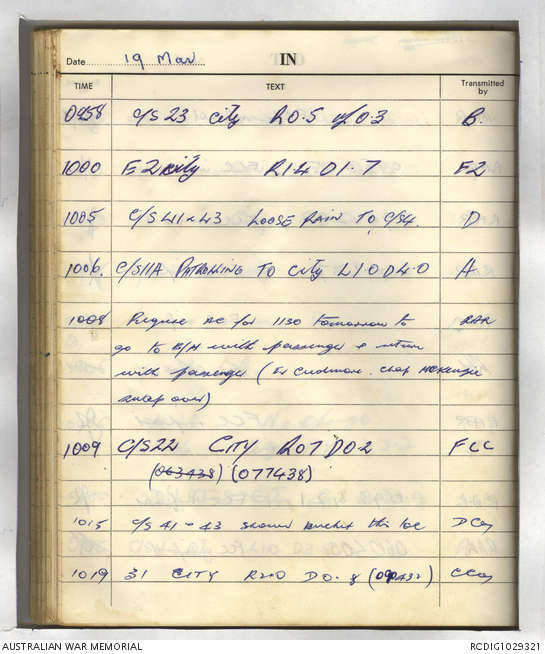 Date 19 Mar IN
TIME TEXT Transmitted by
0958 C/S 23 city R0.5 0.3 B.
1000 E2 city R1.4 D1.7 E2
1005 C/S 41 & 43 LOOSE TO C/S4. D
1006. C/S11A PATROLLING TO City L1.0 D4.0 A
1008 Require AC for 1130 tomorrow to RAR
go to with passenger & return
with passenger ( Cudmore. chap McKenzie
swap over)
1009 C/S22 CITY R0.7 D0.2 FCC
(063438) (077438)
1015 C/S 41 - 43 this loc D Coy
1019 31 CITY D0.8 C Coy
AUSTRALIAN WAR MEMORIAL RCDIG1029321